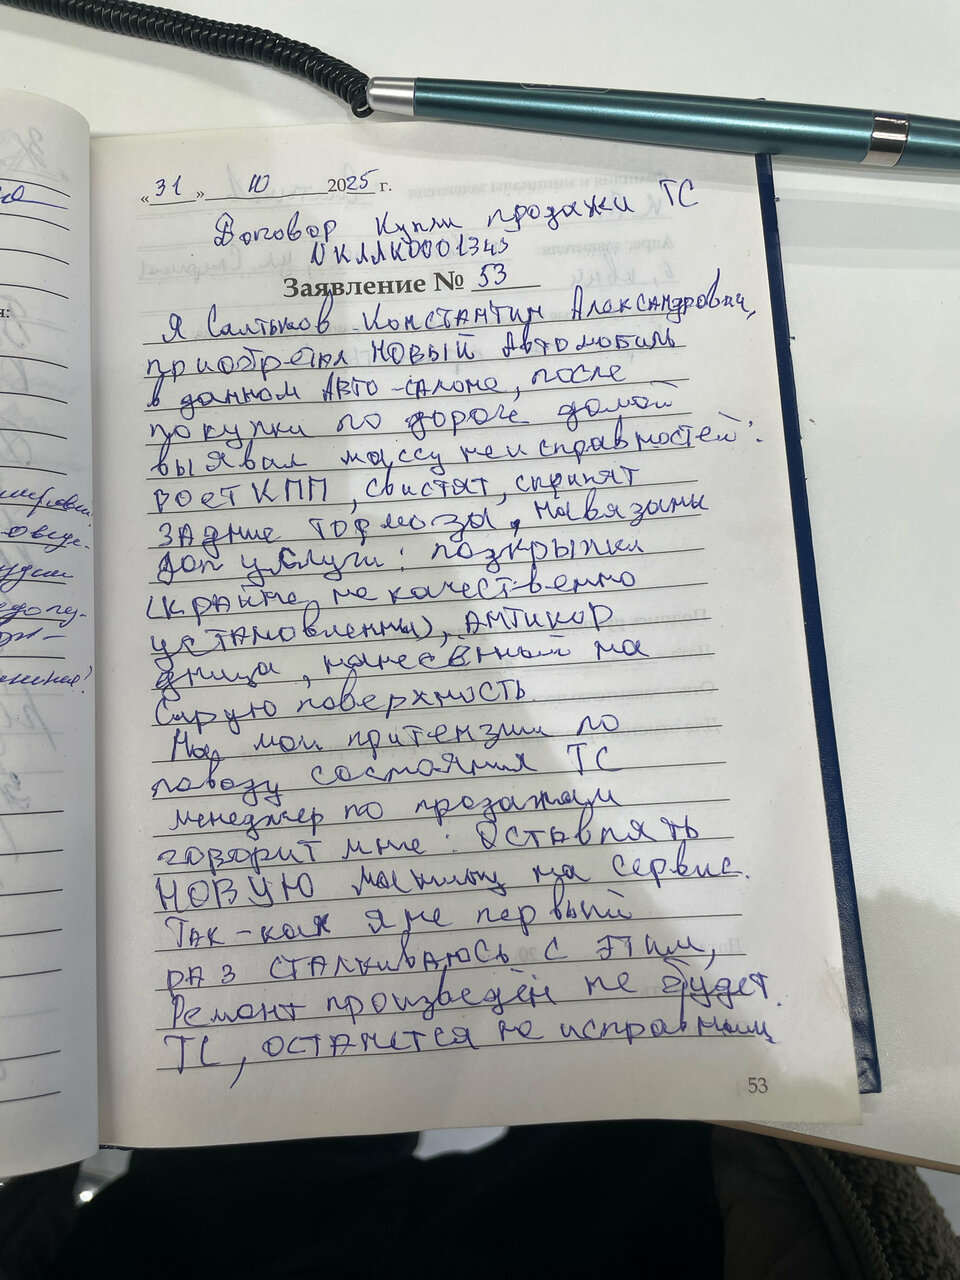 «31» 10 2025 г.
Договор Купли продажи ТС
NКЛЛК0001345
Заявление № 53
Я Салтыков Константин Александрович,
приобретал новый Автомобиль
в данном Авто-салоне, после
покупки по дороге домой
выявил массу неисправностей:
роет КПП, свистят, скрипят
задние тормоза, навязаны
доп услуги: подкрылки
(крайне не качественно
установленны), антикор
днища, нанесённый на
Сырую поверхность
На мои притензии по
поводу состояния ТС
менеджер по продажам
говорит мне: Оставлять
новую машину на сервис.
Так-как я не первый
раз сталкиваюсь с этим,
Ремонт произведён не будет.
ТС, останется не исправным
53